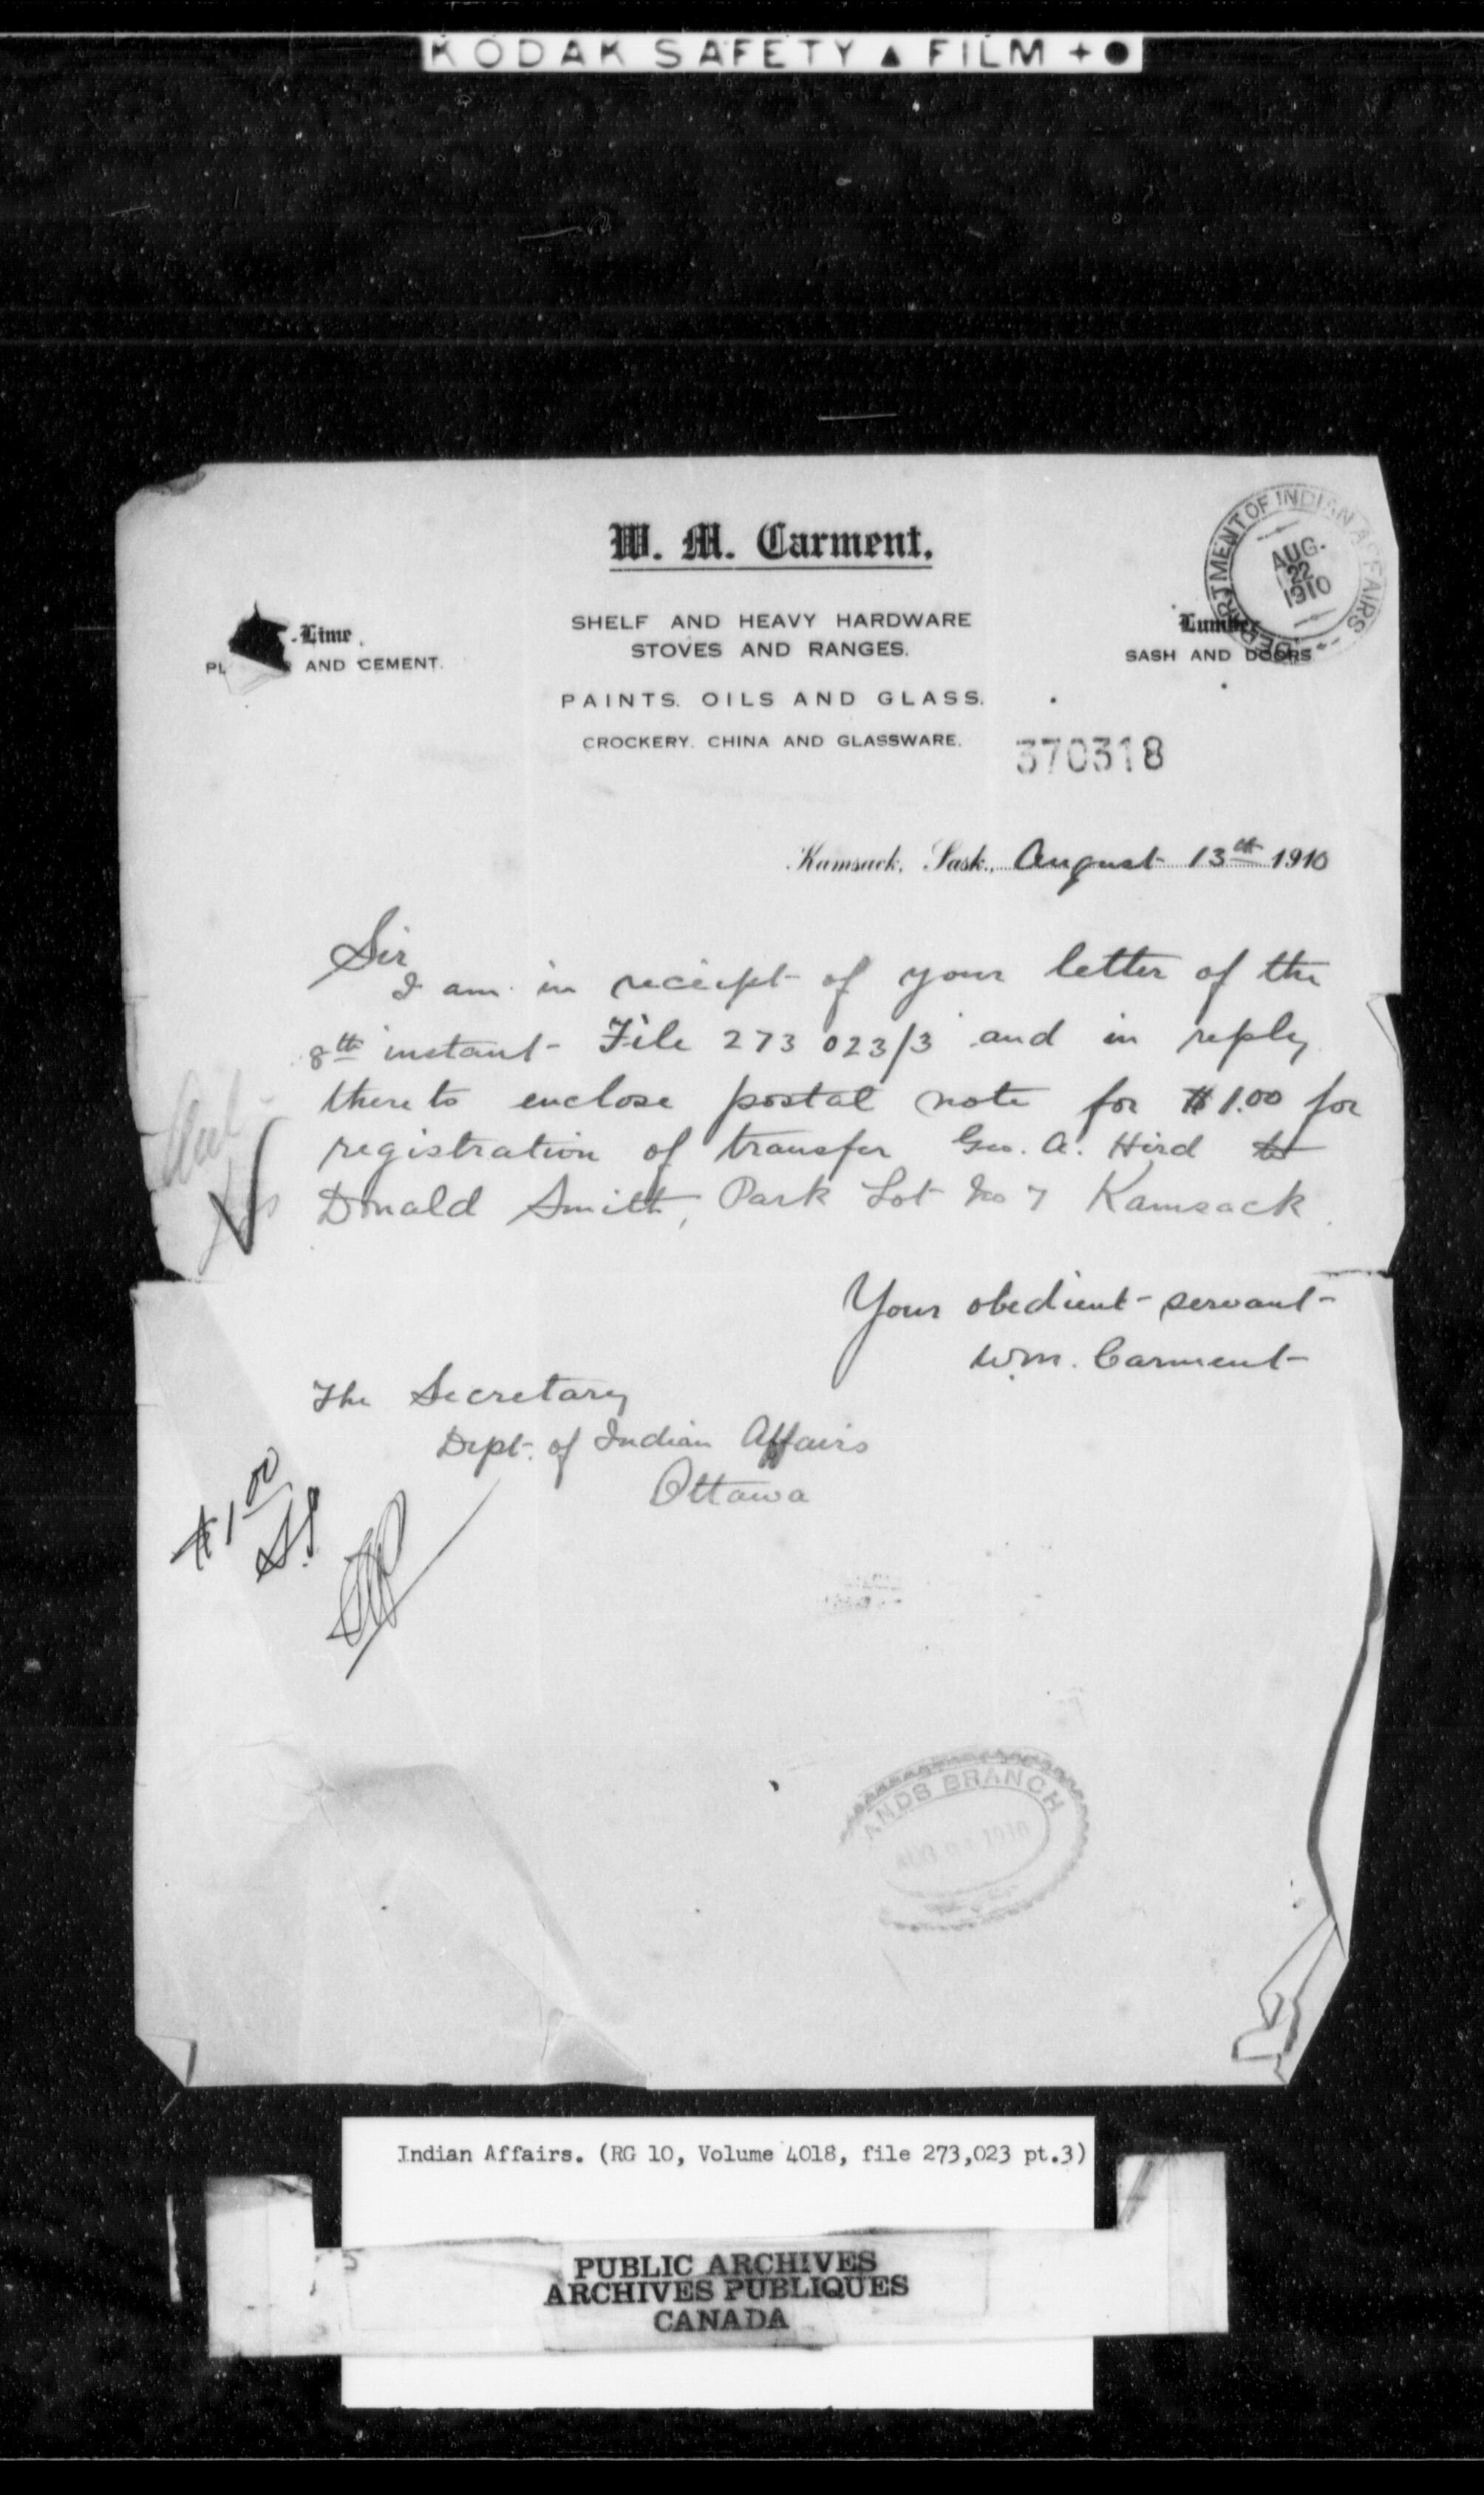 KODAK SAFETY ▲ FILM + ●
W. M. Carment.
DEPARTMENT OF INDIAN AFFAIRS
AUG. 22 1910
Lime
AND CEMENT.
SHELF AND HEAVY HARDWARE
STOVES AND RANGES.
Lumber
SASH AND DOORS
PAINTS. OILS AND GLASS.
CROCKERY. CHINA AND GLASSWARE.
370318
Kamsack, Sask., August 13th 1910
Sir
I am in receipt of your letter of the
8th instant File 273 023/3 and in reply
thereto enclose postal note for $1.00 for
registration of transfer Geo. A. Hird to
Donald Smith, Park Lot No 7 Kamsack.
Your obedient servant
Wm. Carment
The Secretary
Dept. of Indian Affairs
Ottawa
$1.00
ANDS BRANCH
1910
Indian Affairs. (RG 10, Volume 4018, file 273,023 pt.3)
PUBLIC ARCHIVES
ARCHIVES PUBLIQUES
CANADA